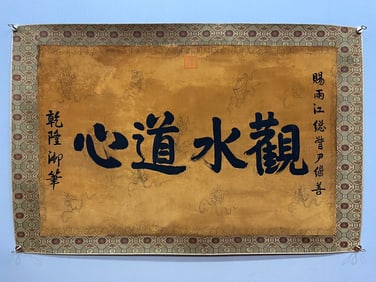 賜兩江總督尹繼善
觀水道心
乾隆御筆